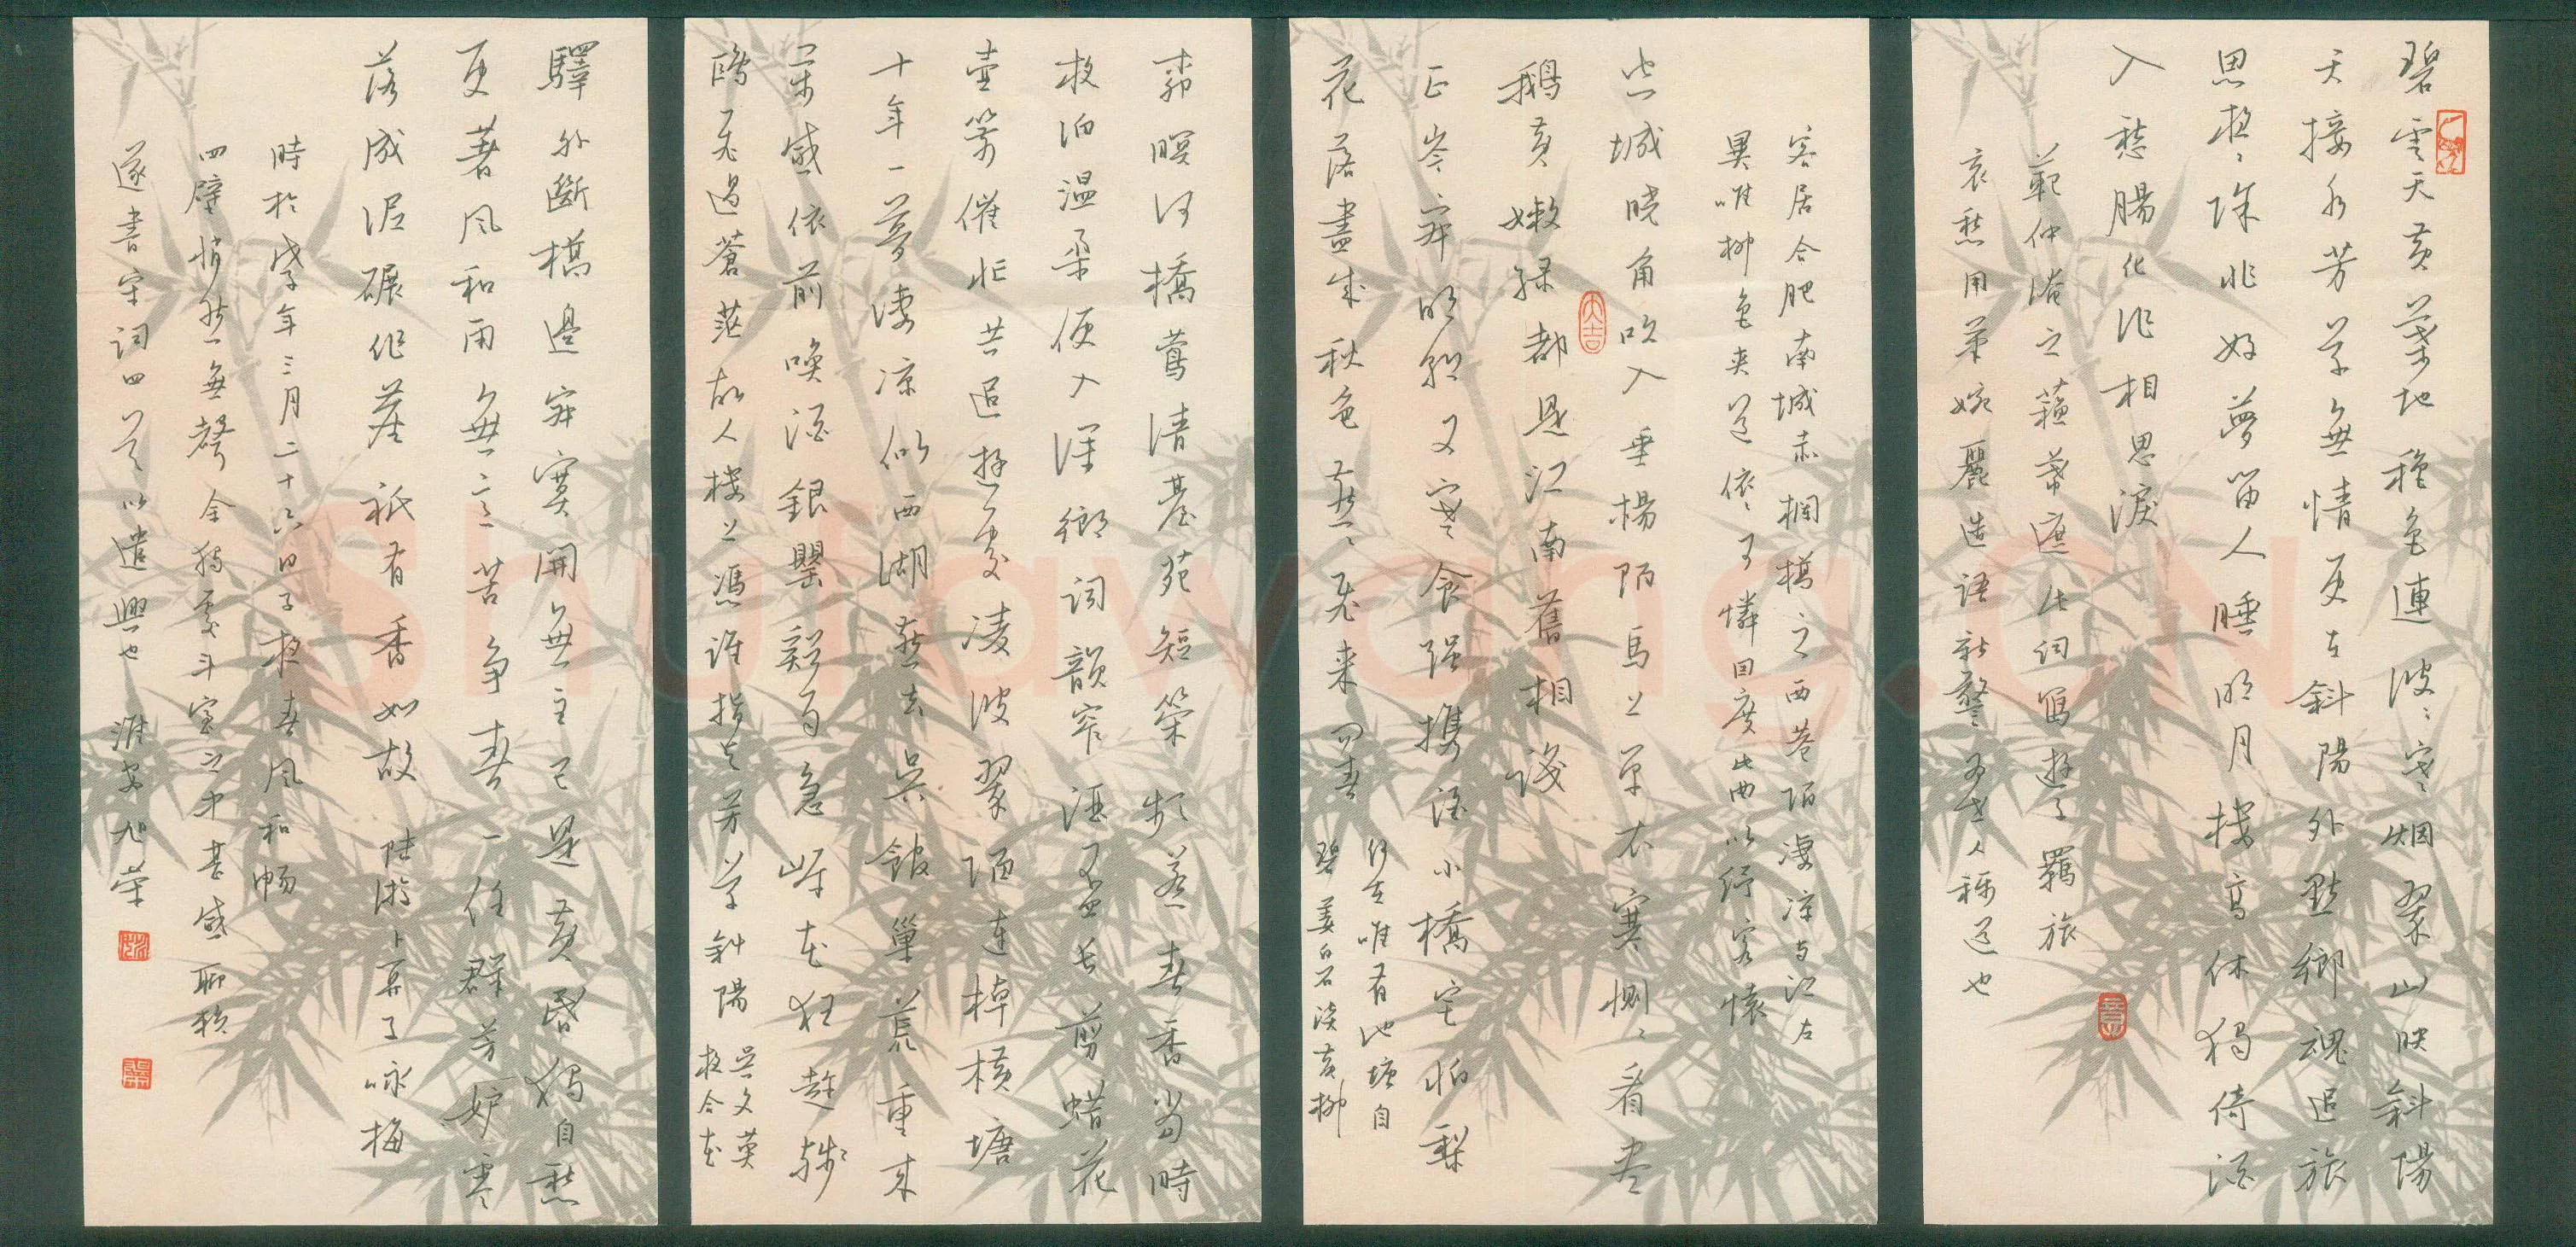 碧雲天黄葉地穐色連波〻寒烟翠山映斜陽
天接水芳草無情更在斜陽外黯鄉魂追旅
思夜〻除非好夢留人睡明月樓高休獨倚酒
入愁腸化作相思淚
範仲淹之蘇幕遮此詞寫遊子羈旅
哀愁用筆婉麗造語新警為世人稱道也
客居合肥南城赤欄橋之西巷陌凄凉与江左
異唯柳色夾道依〻可憐因度此曲以紓客懷
空城曉角吹入垂楊陌馬上單衣寒惻〻看盡
鵝黄嫩綠都是江南舊相識
大吉
正岑寂明朝又寒食强携酒小橋宅怕梨
花落盡成秋色燕〻飛來問春
何在唯有池塘自
碧 姜白石淡黄柳
柳暝河橋鶯清臺苑短策頻惹春香當時
夜泊温柔便入深鄉詞韻窄酒盃長剪蜡花
壺箭催忙共追遊處凌波翠陌連棹横塘
十年一夢凄凉似西湖燕去吳館巢荒重來
萬感依前喚酒銀罌溪雨急岸花狂趁殘
鴉飛過蒼茫故人樓上憑誰指與芳草斜陽
吳文英
夜合花
驛外斷橋邊寂寞開無主已是黄昏獨自愁
更著風和雨無意苦争春一任群芳妒零
落成泥碾作塵祇有香如故 陸游卜算子咏梅
時於戊子年三月二十六日子夜春風和暢
四壁悄然無聲余獨處斗室之中甚感聊賴
遂書宋词四首以遣興也 淮安旭荣
Shufawang.CN